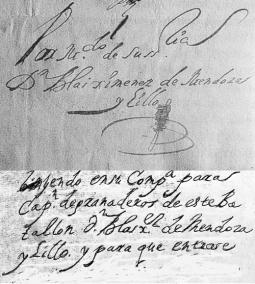 Por M.do de Su ss.rias
D.n Blai Ximenez de Mendoza
y Lillo
en su Comp.a para
Cap.n de granaderos de este Ba
tallon D.n Blas X.ez de Mendoza
y Lillo. y para que entrase